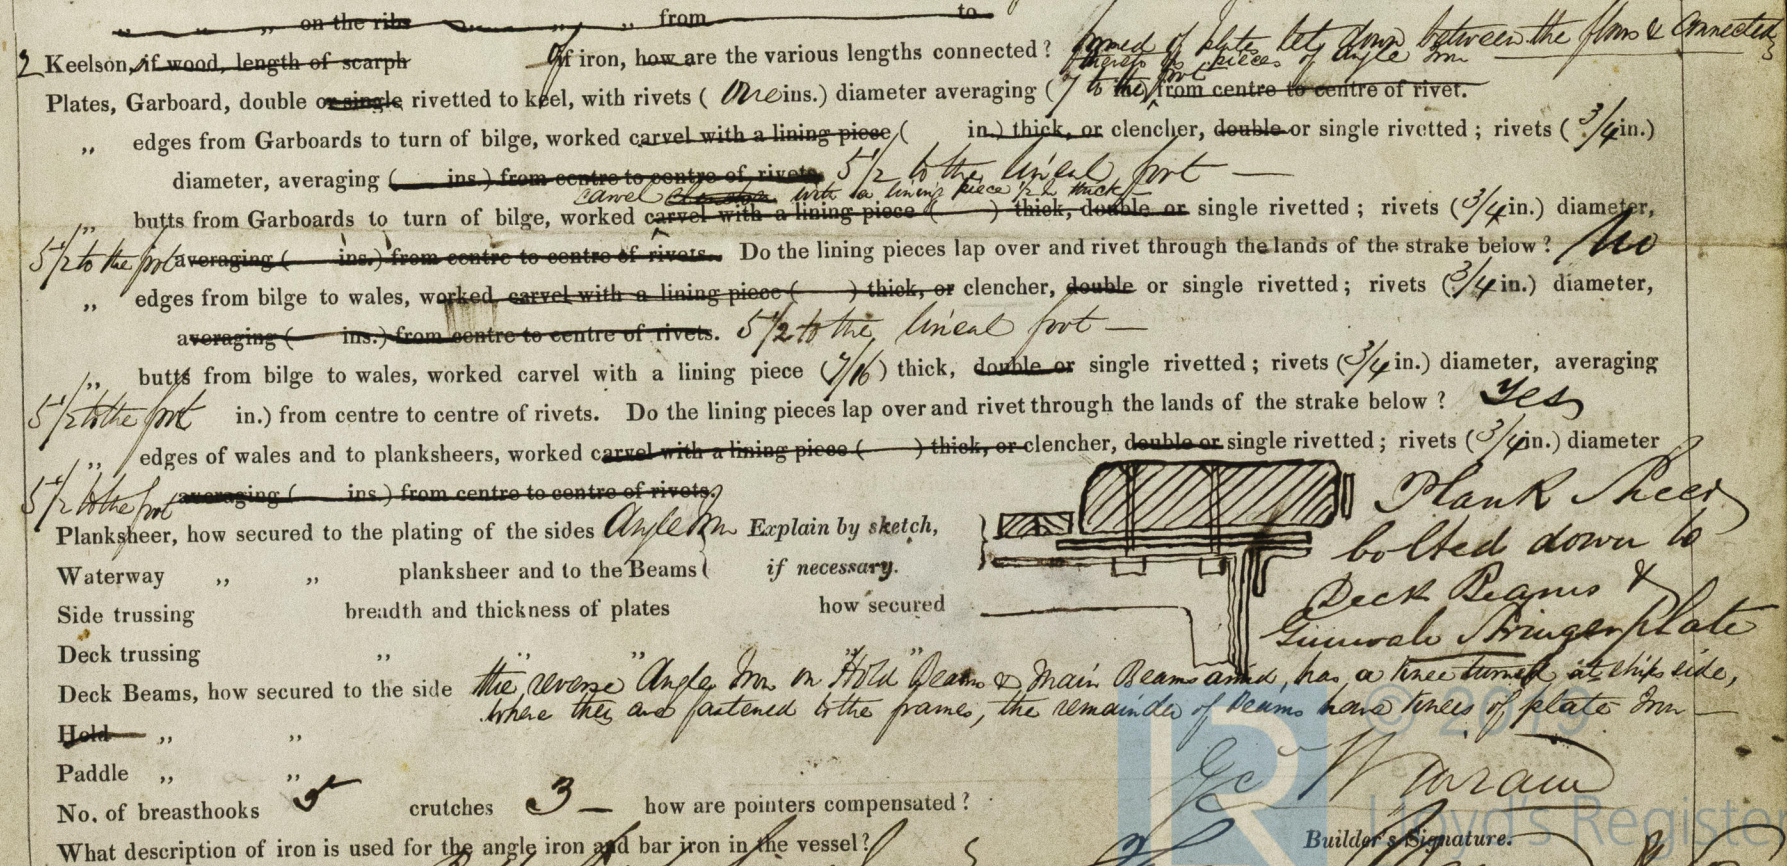 „ „ „ on the ribs „ „ from to
2 Keelson, if wood, length of scarph If iron, how are the various lengths connected? formed of plates let down between the floors & connected
thereto by pieces of angle Iron
Plates, Garboard, double or single rivetted to keel, with rivets ( One ins.) diameter averaging ( 7 to the foot from centre to centre of rivet.
„ edges from Garboards to turn of bilge, worked carvel with a lining piece ( in.) thick, or clencher, double or single rivetted; rivets ( 3/4 in.)
diameter, averaging ( ins.) from centre to centre of rivets. 5 1/2 to the lineal foot —
carvel with a lining piece 1/2 thick
„ butts from Garboards to turn of bilge, worked carvel with a lining piece ( ) thick, double or single rivetted; rivets ( 3/4 in.) diameter,
5 1/2 to the foot averaging ( ins.) from centre to centre of rivets. Do the lining pieces lap over and rivet through the lands of the strake below? No
„ edges from bilge to wales, worked carvel with a lining piece ( ) thick, or clencher, double or single rivetted; rivets ( 3/4 in.) diameter,
averaging ( ins.) from centre to centre of rivets. 5 1/2 to the lineal foot —
„ butts from bilge to wales, worked carvel with a lining piece ( 7/16 ) thick, double or single rivetted; rivets ( 3/4 in.) diameter, averaging
5 1/2 to the foot in.) from centre to centre of rivets. Do the lining pieces lap over and rivet through the lands of the strake below? Yes
„ edges of wales and to planksheers, worked carvel with a lining piece ( ) thick, or clencher, double or single rivetted; rivets ( 3/4 in.) diameter
5 1/2 to the foot averaging ( ins.) from centre to centre of rivets.
Planksheer, how secured to the plating of the sides Angle Iron Explain by sketch,
Waterway „ „ planksheer and to the Beams if necessary.
Plank Sheer
bolted down to
Deck Beams &
Gunwale Stringer plate
Side trussing breadth and thickness of plates how secured
Deck trussing „ „ „ „
Deck Beams, how secured to the side the reverse Angle Iron on Hold Beams & Main Beams and has a knee turned at ships side,
where they are fastened to the frames, the remainder of Beams have knees of plate Iron —
Hold „ „
Paddle „ „
No. of breasthooks 5 crutches 3 — how are pointers compensated?
What description of iron is used for the angle iron and bar iron in the vessel?
Builder's Signature.
© 2019
Lloyd's Register